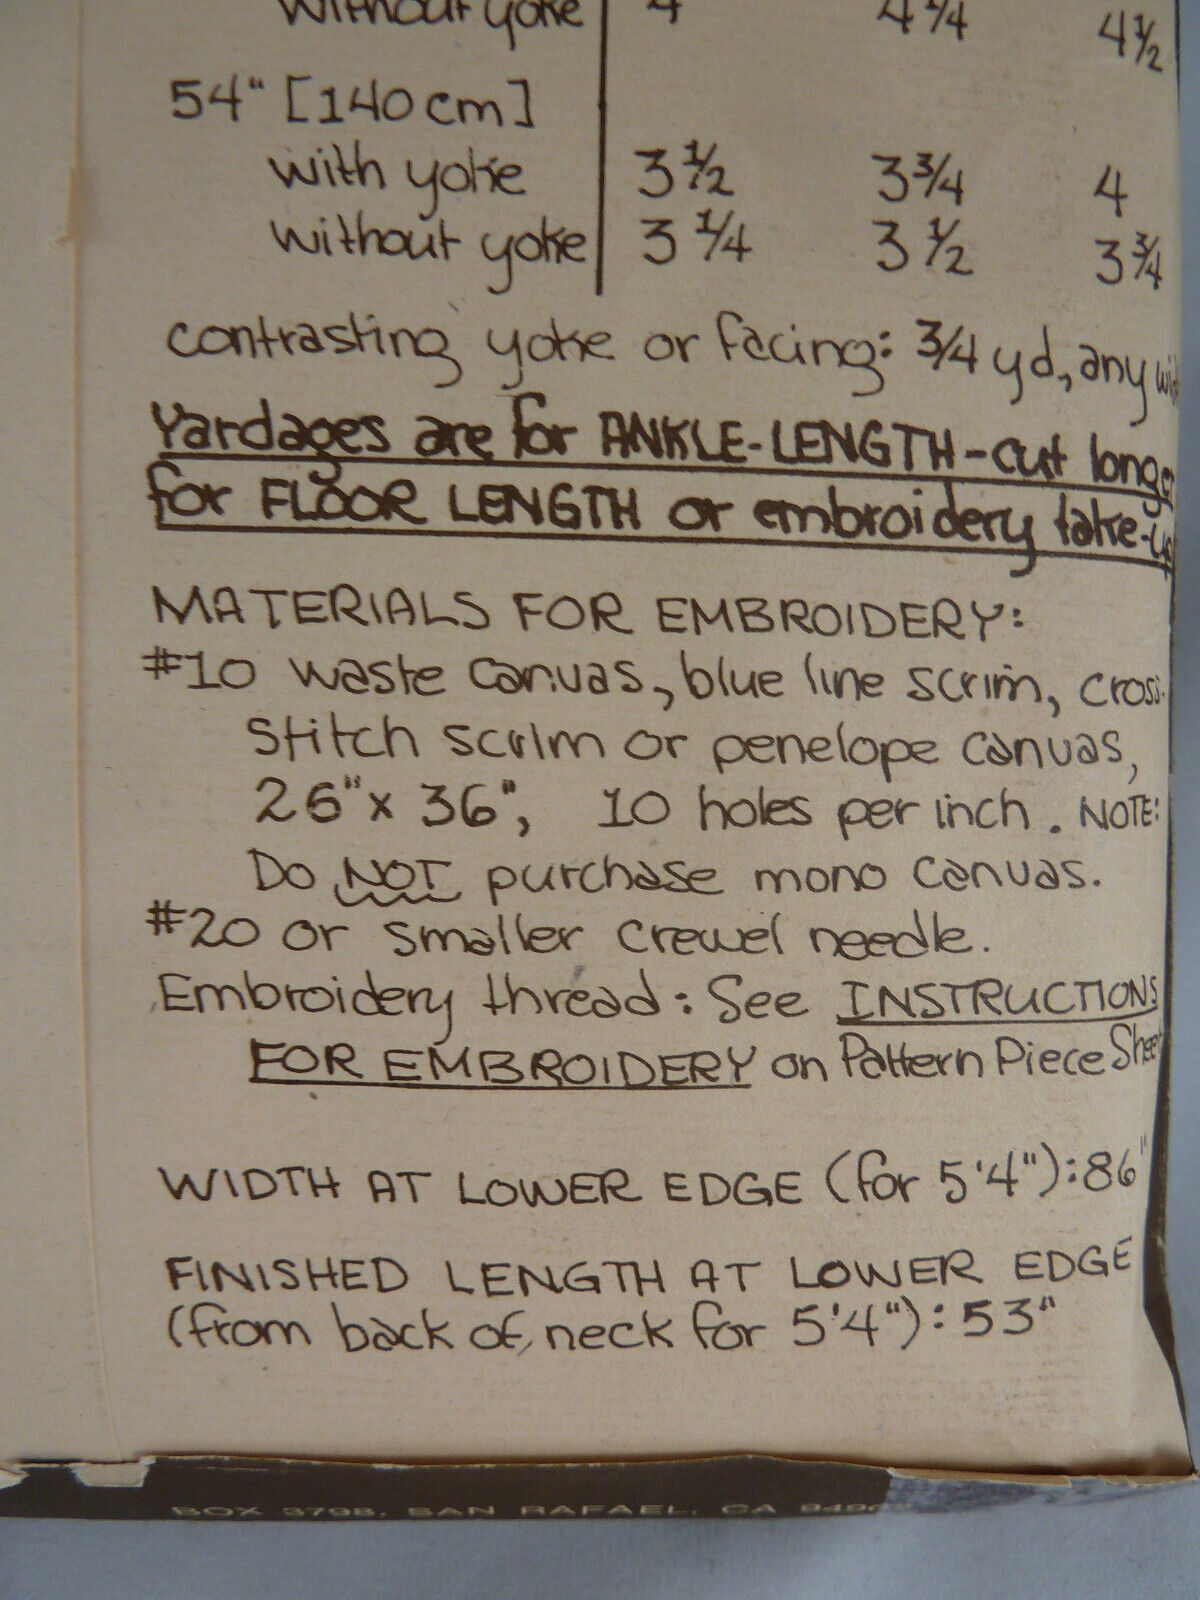 without yoke 4 4 1/4 4 1/2
54" [140cm]
with yoke 3 1/2 3 3/4 4
without yoke 3 1/4 3 1/2 3 3/4
contrasting yoke or facing: 3/4 yd, any
Yardages are for ANKLE-LENGTH-cut longer
for FLOOR LENGTH or embroidery take-up
MATERIALS FOR EMBROIDERY:
#10 waste canvas, blue line scrim, cross-
stitch scrim or penelope canvas,
26" x 36", 10 holes per inch. NOTE:
Do NOT purchase mono canvas.
#20 or smaller crewel needle.
Embroidery thread: See INSTRUCTIONS
FOR EMBROIDERY on Pattern Piece Sheet
WIDTH AT LOWER EDGE (for 5'4"): 86"
FINISHED LENGTH AT LOWER EDGE
(from back of neck for 5'4"): 53"
BOX 3798, SAN RAFAEL, CA